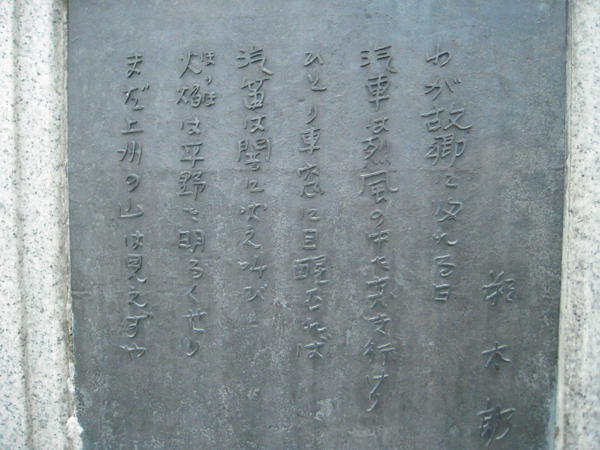 朔太郎
わが故郷に帰れる日
汽車は烈風の中を突き行けり
ひとり車窓に目醒むれば
汽笛は闇に吠え叫び
火焔は平野を明るくせり
ほのほ
まだ上州の山は見えずや